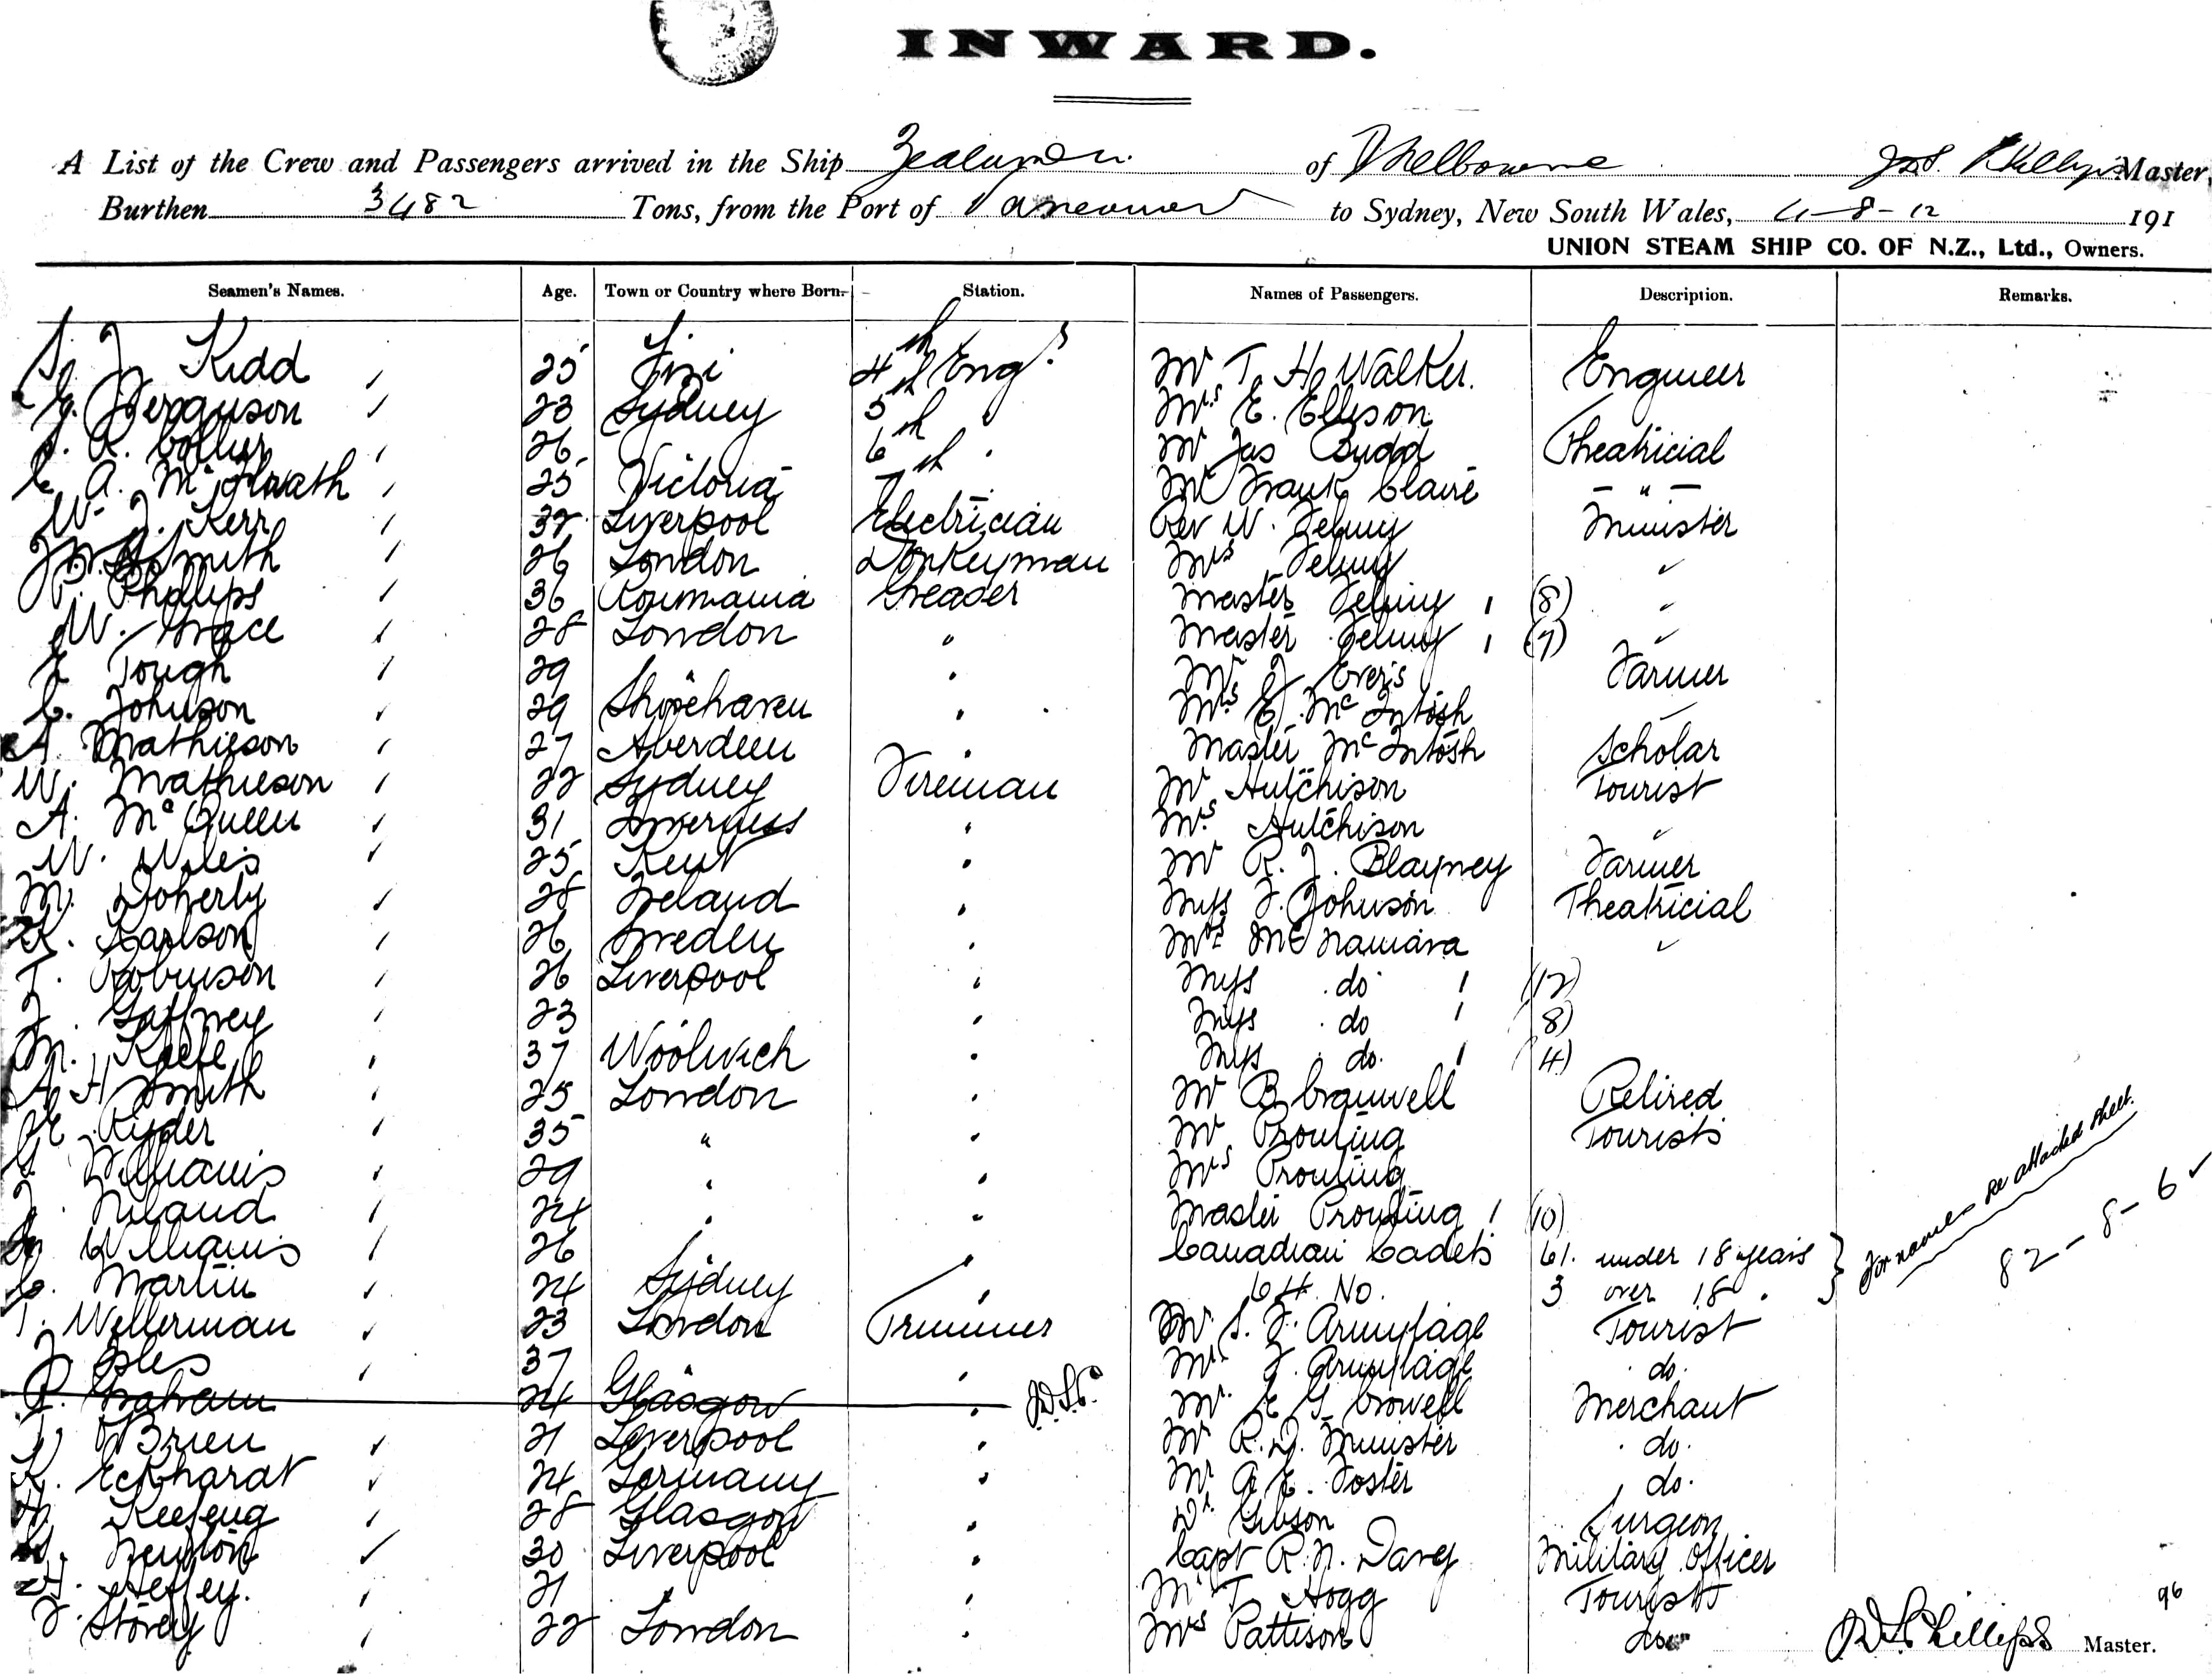 INWARD.
A List of the Crew and Passengers arrived in the Ship Zealandia of Melbourne Phillips Master,
Burthen 3482 Tons, from the Port of Vancouver to Sydney, New South Wales, 4-8-12 191
UNION STEAM SHIP CO. OF N.Z., Ltd., Owners.
Seamen's Names. Age. Town or Country where Born. Station. Names of Passengers. Description. Remarks.
Kidd 25 Fiji 4th Engr Mr T. H. Walker. Engineer
Ferguson 23 Sydney 5th " Mrs E. Ellison
R. Collier 26 6th " Mr Jas Budd Theatricial
A. McIlwrath 25 Victoria 7th Mr Frank Claire - " -
W. J. Kerr 32 Liverpool Electrician Rev W. Minister
Smith 26 London Donkeyman Mrs "
Phillips 36 Roumania Greaser Master (8) "
W. Grace 28 London " Master (7) "
Tough 29 " " Mr J. Evers Farmer
C. Johnson 29 " Mrs E. McIntosh "
A. Mathieson 27 Aberdeen " Master McIntosh Scholar
W. Mathieson 22 Sydney Fireman Mr Hutchison Tourist
A. McQueen 31 Inverness " Mrs Hutchison "
W. Wiles 25 Kent " Mr R. J. Blayney Farmer
M. Doherty 28 Ireland " Miss J. Johnson Theatricial
K. Karlson 26 Sweden " Mrs McNamara "
T. Robinson 26 Liverpool " Miss do (12)
J. Gaffney 23 " Miss do (8)
M. Keefe 37 Woolwich " Miss do. (4)
A. H. Smith 25 London " Mr B Cranwell Retired
Ryder 35 " " Mr Prouting Tourists
Williams 29 " " Mrs Prouting
J. Niland 24 " " Master Prouting (10)
Williams 26 " Canadian Cadets 61. under 18 years } For names see attached sheet.
C. Martin 24 Sydney " 64 No. 3 over 18 " } 82-8-6
T. Wellerman 23 London Trimmer Mr. S. J. Armytage Tourist
J. Isles 37 " Mr. J. Armytage do.
R. Graham 24 Glasgow " Mr. E. G. Crowell Merchant
O'Brien 21 Liverpool " Mr R. D. Minister do.
K. Eckhardt 24 Germany " Mr. A. E. Foster do.
28 Glasgow " Dr. Gibson Surgeon
Newton 30 Liverpool " Capt R. N. Davey Military Officer
Heffey. 21 " Mr T. Hogg Tourists
J. Storey 22 London " Mrs Pattison do. Phillips Master.
96